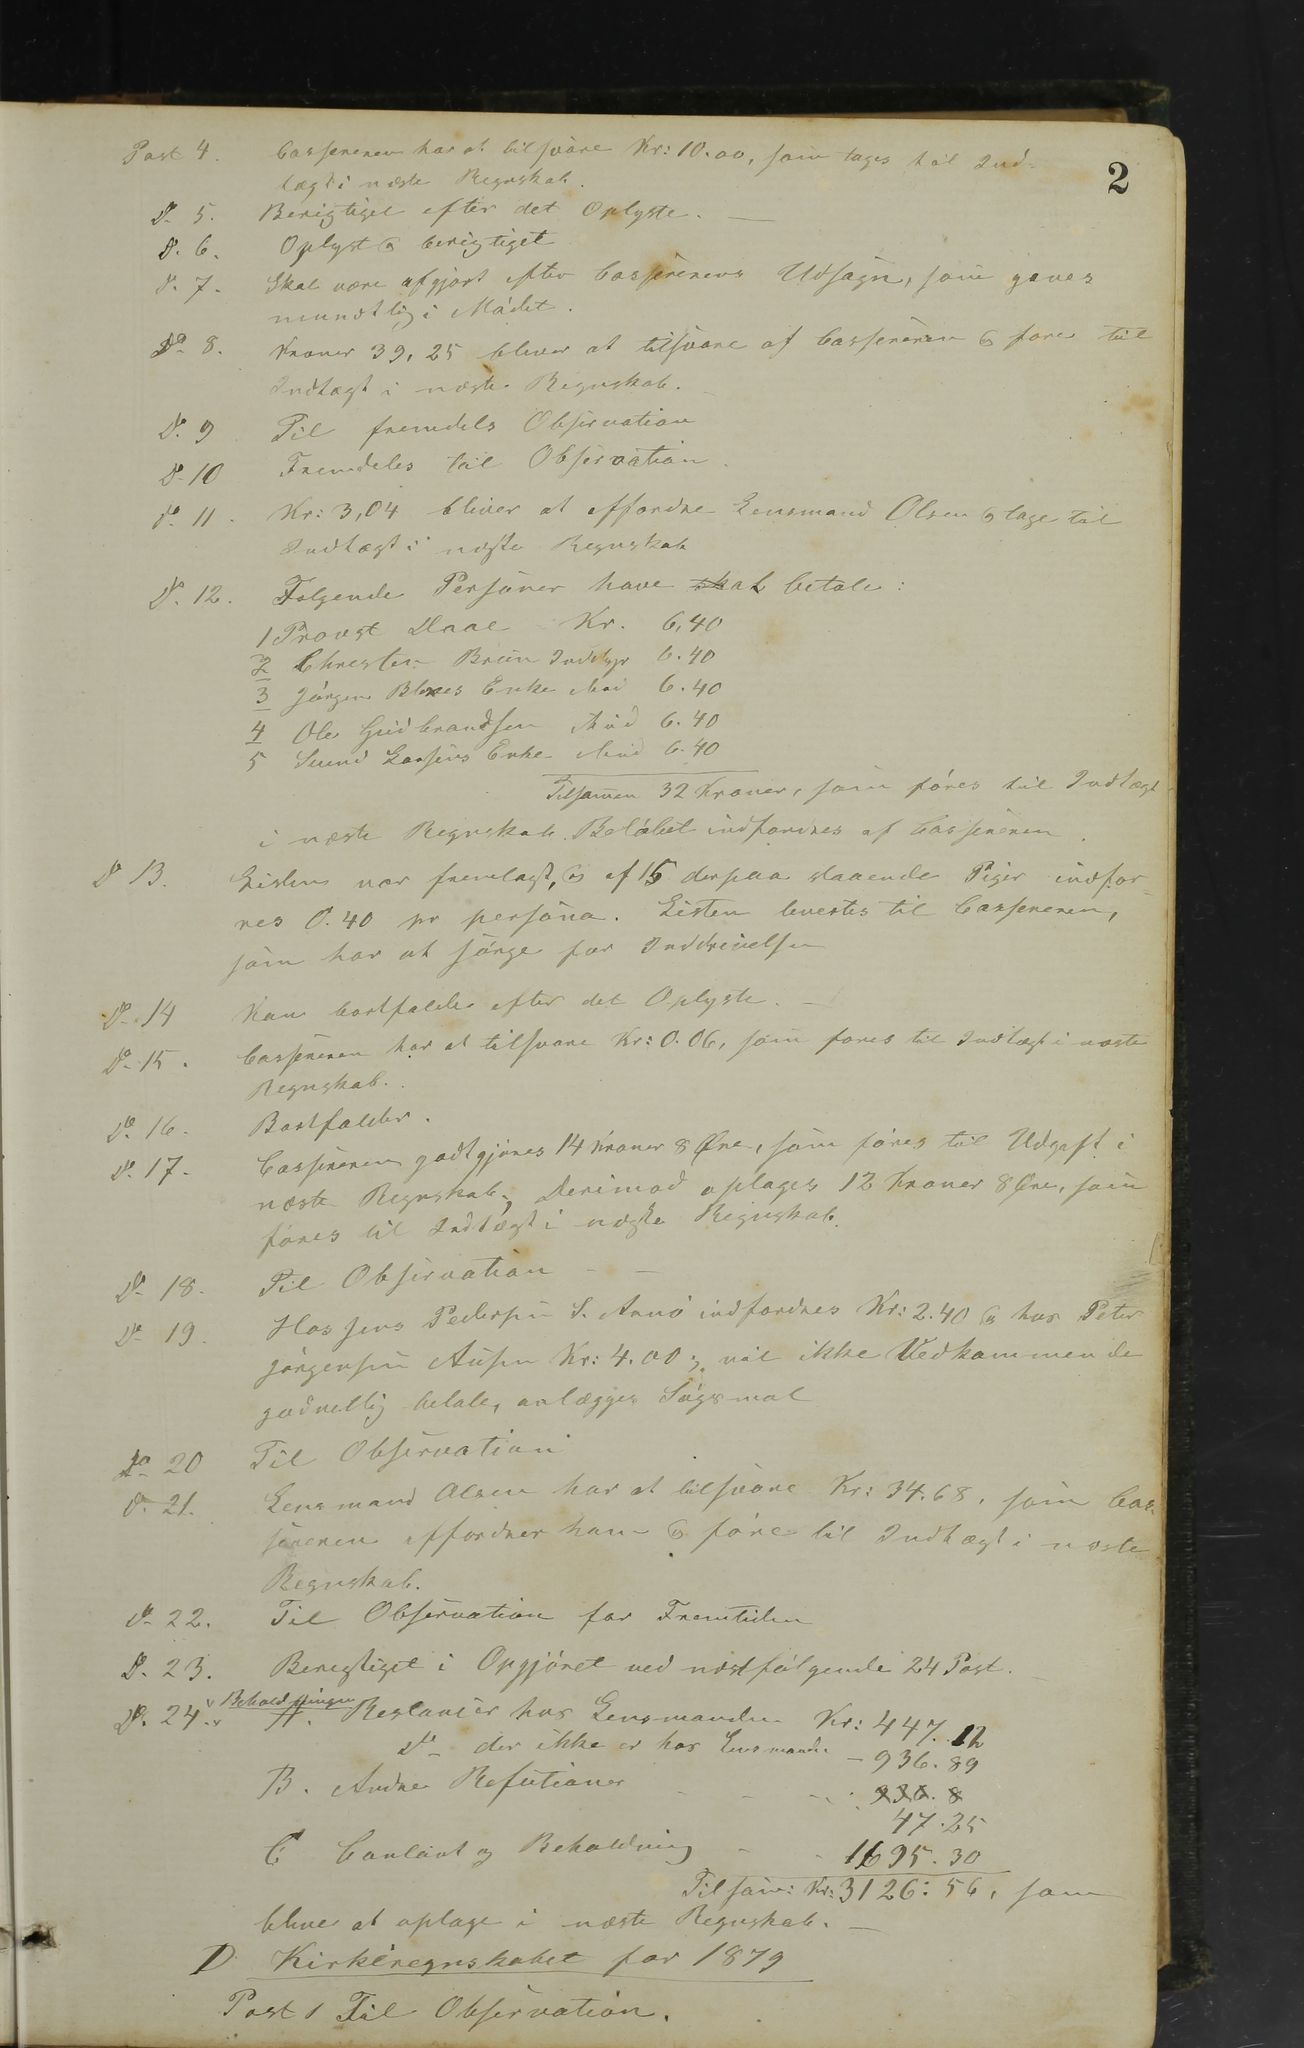 2
Post 4. Cassereren har at tilsvare Kr: 10.00, som tages til Ind-
tægt i næste Regnskab.
Do 5. Berigtiget efter det Oplyste. —
Do 6. Oplyst & berigtiget
Do 7. Skal være afgjort efter Cassererens Udsagn, som gaves
mundtlig i Mødet.
Do 8. Kroner 39,25 bliver at tilsvare af Cassereren & føres til
Indtægt i næste Regnskab.
Do 9 Til fremdeles Observation
Do 10 Fremdeles til Observation.
Do 11. Kr: 3,04 bliver at affordre Lensmand Olsen & tage til
Indtægt i næste Regnskab
Do 12. Følgende Personer have at betale:
1 Provst Daae Kr. 6,40
2 Christen Brun 6.40
3 Jørgen Enke 6.40
4 Ole Gudbrandsen 6.40
5 Enke 6.40
Tilsammen 32 Kroner, som føres til Indtægt
i næste Regnskab. Beløbet indfordres af Cassereren.
Do 13. Listen var fremlagt, & af 15 derpaa staaende Piger indfor-
res 0.40 pr persona. Listen leveres til Cassereren,
som har at sørge for Inddrivelsen
Do 14 Kan bortfalde efter det Oplyste. —
Do 15. Cassereren har at tilsvare Kr: 0.06, som føres til Indtægt i næste
Regnskab.
Do 16. Bortfalder.
Do 17. Cassereren godtgjøres 14 Kroner 8 Øre, som føres til Udgift i
næste Regnskab; Derimod optages 12 Kroner 8 Øre, som
føres til Indtægt i næste Regnskab.
Do 18. Til Observation — —
Do 19. Hos Jens Pedersen S. Arnø indfordres Kr: 2.40 & hos Peter
Jørgensen Kr: 4.00; vil ikke Vedkommende
godvillig betale, anlægges Søgsmal
Do 20 Til Observation
Do 21. Lensmand Olsen har at tilsvare Kr: 34.68, som Cas-
sereren affordrer ham & føre til Indtægt i næste
Regnskab.
Do 22. Til Observation for Fremtiden
Do 23. Berigtiget i Opgjøret ved næstfølgende 24 Post.
Do 24. Beholdningen A. Restancer hos Lensmanden Kr: 447.12
Do der ikke er hos Lensmanden — 936.89
B. Andre Refusioner - - - 936.8
47.25
C Contant og Beholdning - - 1695.30
Tilsam: Kr: 3126:56, som
bliver at optage i næste Regnskab. —
D Kirkeregnskabet for 1879
Post 1 Til Observation.